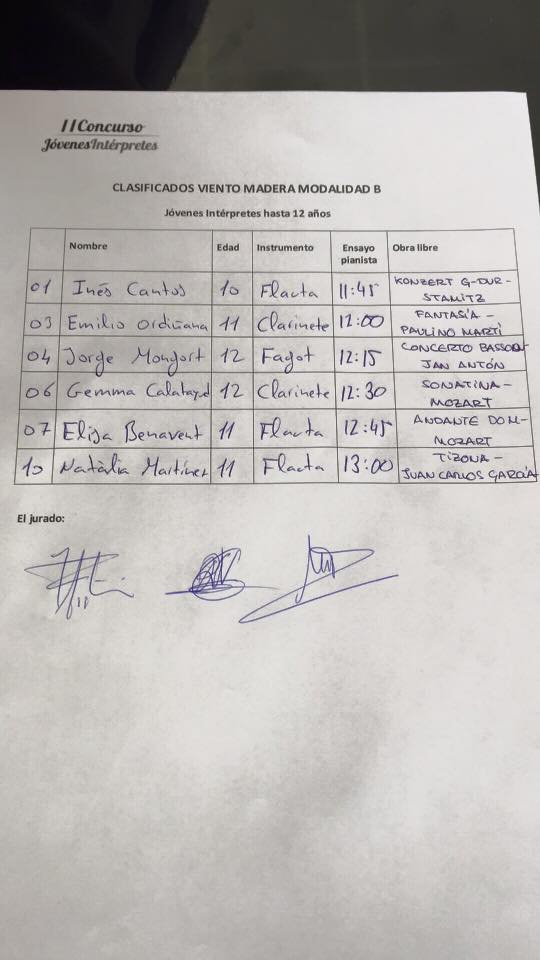 II Concurso
JóvenesIntérpretes
CLASIFICADOS VIENTO MADERA MODALIDAD B
Jóvenes Intérpretes hasta 12 años
Nombre Edad Instrumento Ensayo pianista Obra libre
01 Inés Cantos 10 Flauta 11:45 KONZERT G-DUR - STAMITZ
03 Emilio Ordiñana 11 Clarinete 12:00 FANTASÍA - PAULINO MARTÍ
04 Jorge Mongort 12 Fagot 12:15 CONCERTO BASSOON JAN ANTÓN
06 Gemma Calatayud 12 Clarinete 12:30 SONATINA - MOZART
07 Elisa Benavent 11 Flauta 12:45 ANDANTE DO M - MOZART
10 Natàlia Martínez 11 Flauta 13:00 TIZONA - JUAN CARLOS GARCÍA
El jurado: